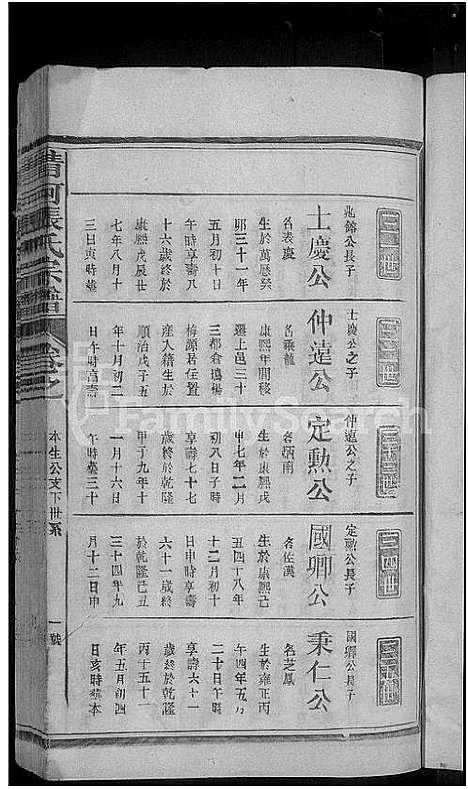 清河張氏宗譜
卷之
本生公支下世系
一號
三二世
兆錦公長子
士慶公
名表慶
生於萬曆癸
卯三十一年
五月初十日
午時享壽八
十六歲終於
康熙戊辰廿
七年八月十
三日寅時葬
士慶公之子
仲達公
名乘龍
康熙年間移
遷上邑三十
三都倉塢楊
梅源居住置
產入籍生於
順治戊子五
年十月初二
日午時享壽
三十三世
仲達公之子
定勳公
名炳南
生於康熙戊
申七年二月
初八日子時
享壽七十七
歲終於乾隆
甲子九年十
一月十六日
午時葬三十
三四世
定勳公長子
國卿公
名佐漢
生於康熙己
丑四十八年
十二月初十
日申時享壽
六十一歲終
於乾隆己丑
三十四年九
月十二日申
三十五世
國卿公長子
秉仁公
名芝鳳
生於雍正丙
午四年五月
二十日午時
享壽六十一
歲終於乾隆
丙午五十一
年五月初四
日亥時葬本
FamilySearch